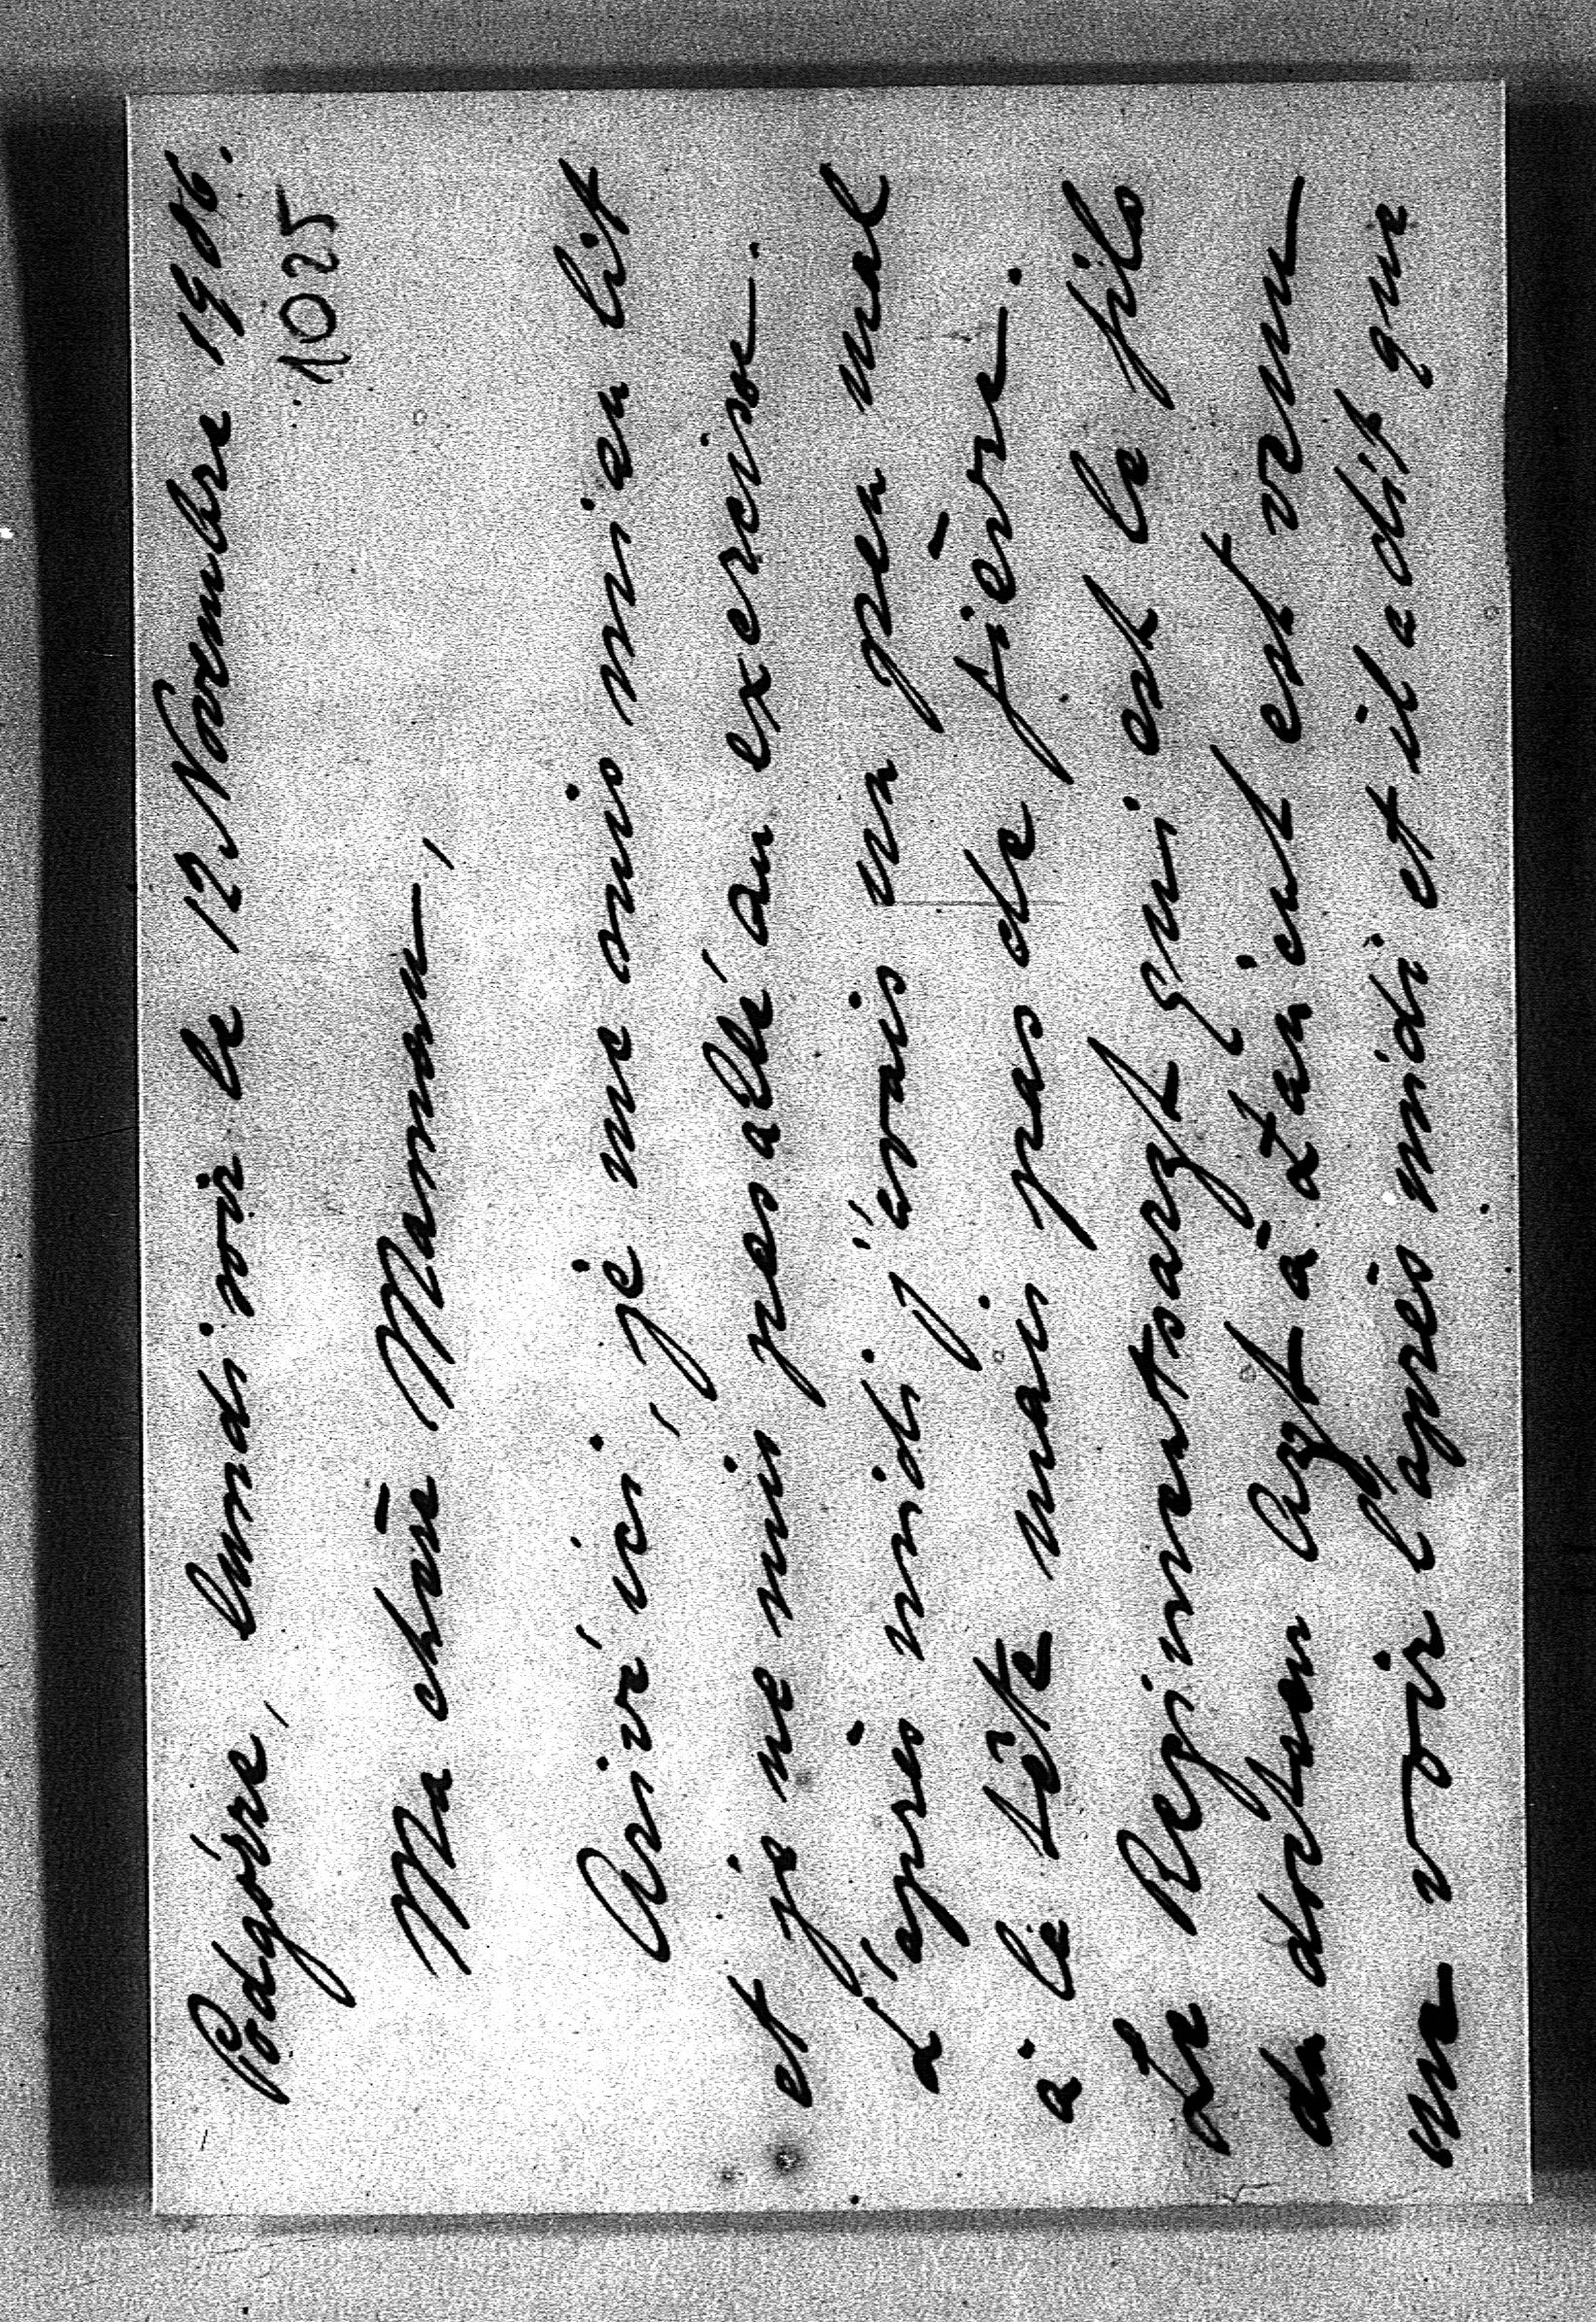 Podgórze, lundi soir le 12 Novembre 1906.
1025
Ma chère Maman,
Arivé ici, je me suis mis au lit
et je ne suis pas allé au exercise.
L'après midi j'avais un peu mal
à la tête mais pas de fièvre.
Le Regimentsarzt qui est le fils
du docteur Arzt à Łańcut est venu
me voir l'après midi et il a dit que